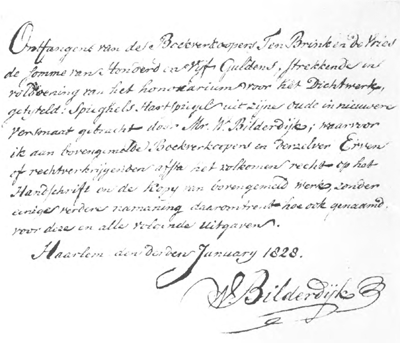 Ontfangen van de Boekverkoopers Ten Brink en de Vries
de somme van Honderd en Vijf Guldens, strekkende en
voldoening van het honorarium voor het Dichtwerk,
getyteld: Spieghels Hartspiegel uit zijne oude in nieuwere
Versmaat gebracht door Mr. W. Bilderdijk; waarvoor
ik aan bovengemelde Boekverkoopers en derzelver Erven
of rechtverkrijgenden afsta het volkomen recht op het
Handschrift en de Kopy van bovengemeld werk, zonder
eenige verdere namaning daaromtrent hoe ook genaamd.
voor deze en alle volgende Uitgaven.
Haarlem den derden January 1828.
WBilderdijk